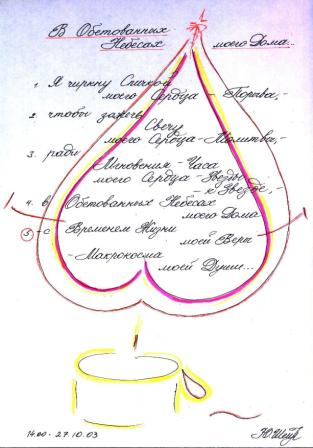 В Обетованных
Небесах
моего Дома...
1. Я чиркну Спичкой
моего Сердца - Порыва,-
2. чтобы зажечь
Свечу
моего Сердца-Молитвы,-
3. ради
Мгновения - Часа
моего Сердца-Звезды
к Звезде,-
4. в Обетованных Небесах
моего Дома
5. -с Временем Жизни
моей Веры
-Макрокосма
моей Души...
14.00 - 27.10.03